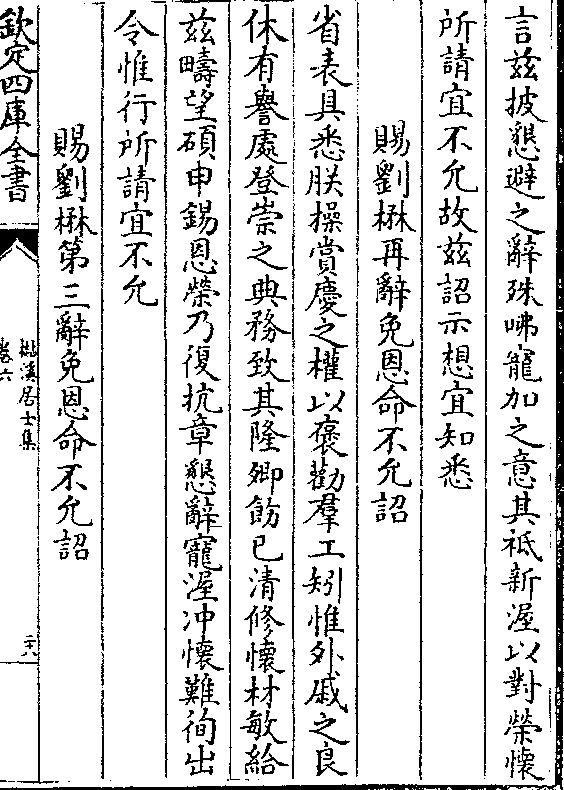 言兹披懇避之辭殊咈寵加之意其祗新渥以對榮懷
所請宜不允故兹詔示想宜知悉
賜劉楙再辭免恩命不允詔
省表具悉朕操賞慶之權以褒勸羣工矧惟外戚之良
休有譽處登崇之典務致其隆卿飭已清修懷材敏給
兹疇望碩申錫恩榮乃復抗章懇辭寵渥冲懷難徇出
令惟行所請宜不允
賜劉楙第三辭免恩命不允詔
欽定四庫全書
楳溪居士集
卷六
二十八